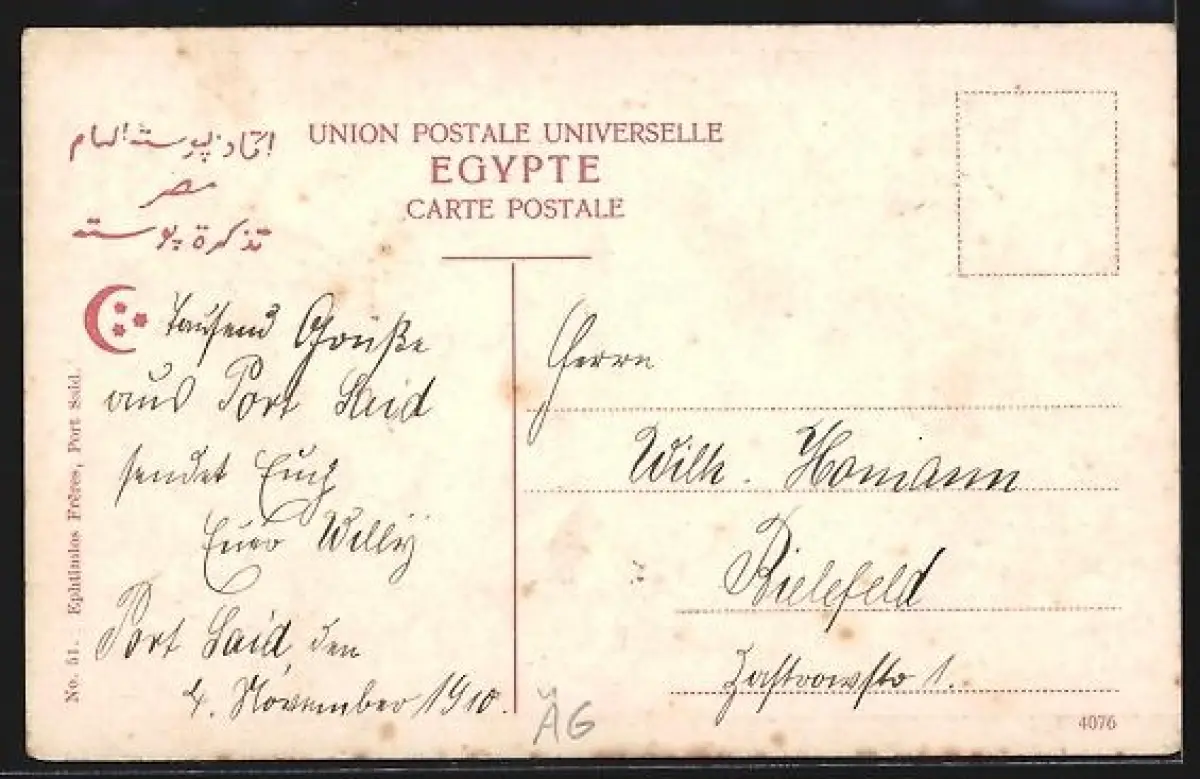 اتحاد بوسته العام
مصر
تذكرة بوسته
UNION POSTALE UNIVERSELLE
EGYPTE
CARTE POSTALE
Tausend Grüße
aus Port Said
sendet Euch
Euer Willy
Port Said, den
4. November 1910.
Herrn
Wilh. Homann
Bielefeld
Zastrowstr 1.
No. 51. - Ephtimios Frères, Port Said.
4076
ÄG